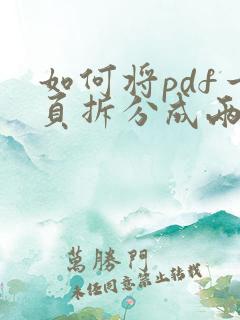 如何将pdf一
页拆分成两
萬勝門
未经同意禁止转载